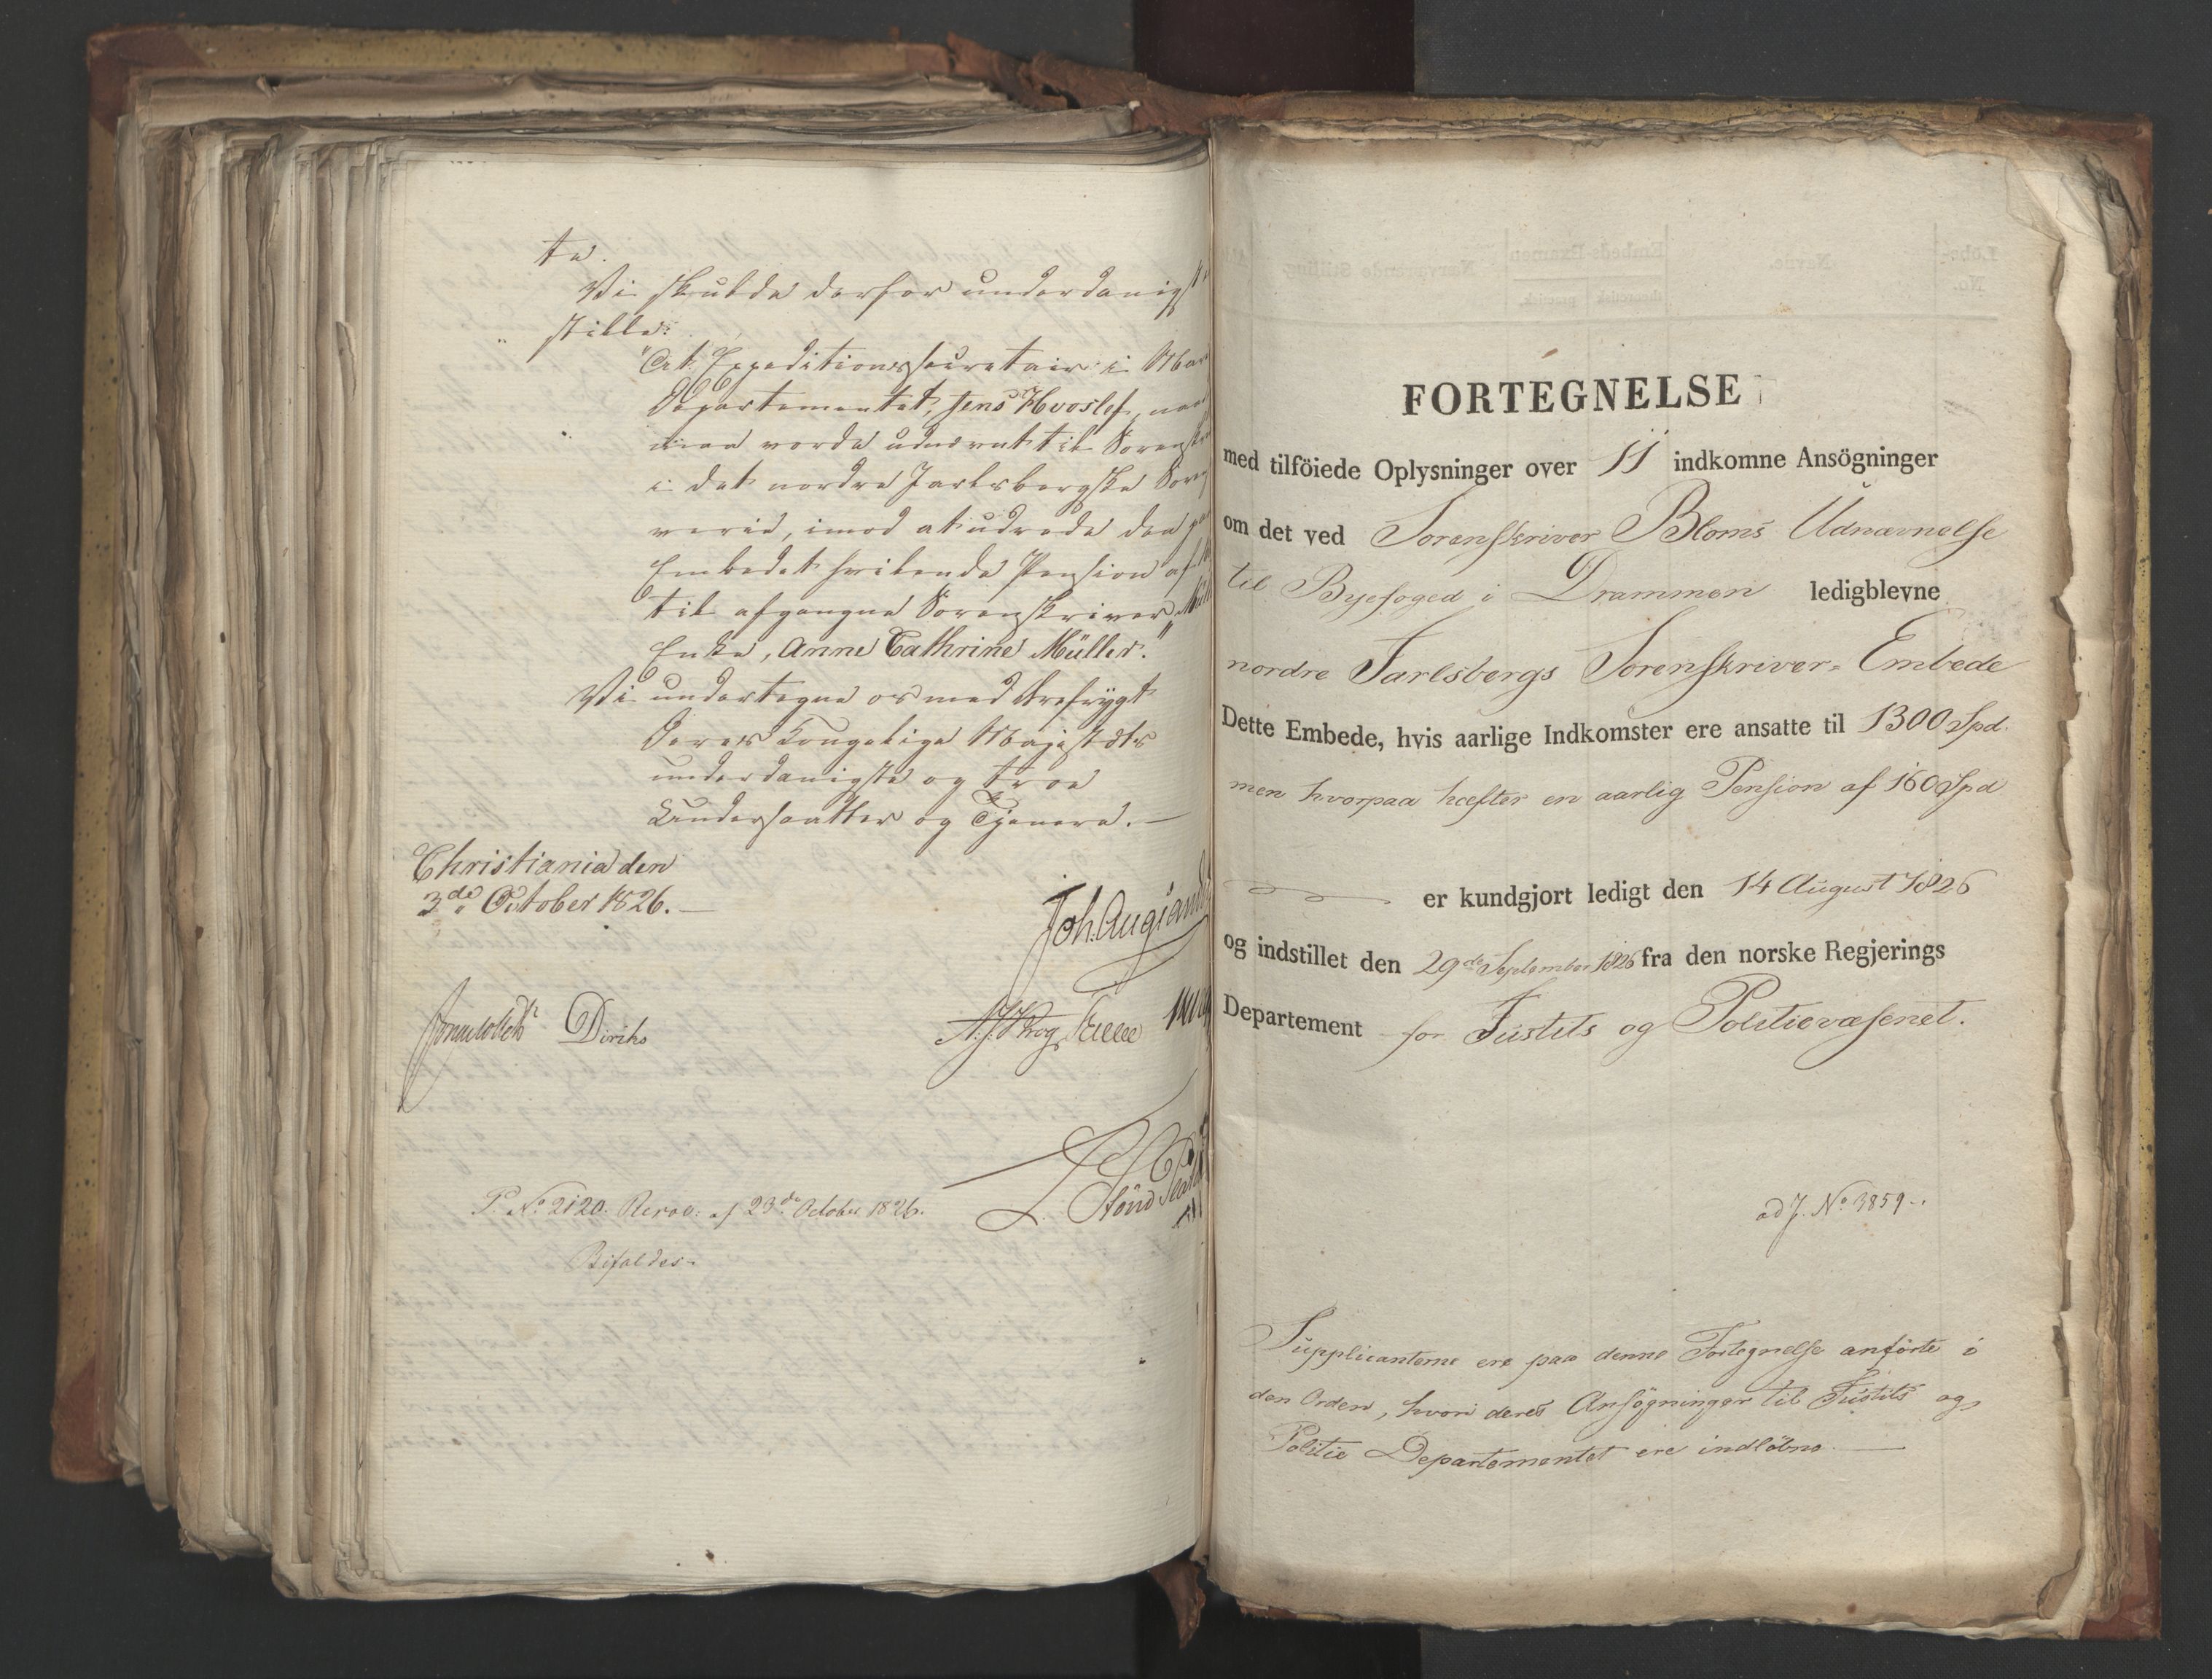 te.
Vi skulde derfor underdanigst
stille:
"At Expeditionssecretair i
Departementet, Jens Hvoslef,
maa vorde udnævnt til
i det nordre Jarlsbergske
imod at udrede den
Embedet hvilende Pension af
til afgangne Sorenskriver
Enke, Anne Cathrine Müller."
Vi undertegne os med Ærefrygt
Deres Kongelige Majestæts
underdanigste og troe
Undersaatter og Tjenere. —
Christiania den
3de October 1826. —
Joh. Aug
Diriks
P. No 2120. Resol: af 23de October 1826.
Bifaldes.
FORTEGNELSE
med tilföiede Oplysninger over 11 indkomne Ansögninger
om det ved Sorenskriver Bloms Udnævnelse
til Byefoged i Drammen ledigblevne
nordre Jarlsbergs Sorenskriver-Embede
Dette Embede, hvis aarlige Indkomster ere ansatte til 1300 Spd.
men hvorpaa hæfter en aarlig Pension af 160 Spd
er kundgjort ledigt den 14 August 1826
og indstillet den 29de September 1826 fra den norske Regjerings
Departement for Justits og Politievæsenet.
ad J. No 3859.
Supplicanterne ere paa denne Fortegnelse anförte i
den Orden, hvori deres Ansögninger til Justits og
Politie Departementet ere indlöbne. —